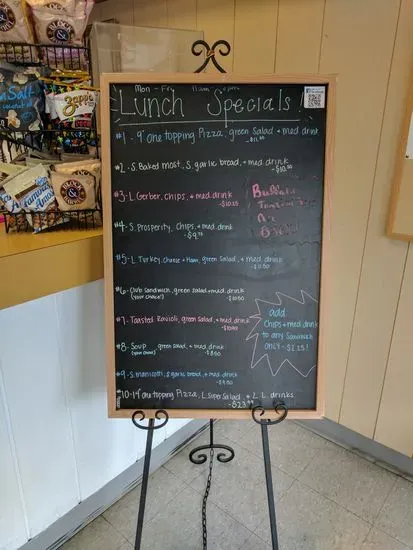 Mon - Fri 11am
Lunch Specials
#1 - 9" one topping Pizza, green Salad + med drink
#2 - S. Baked most. S. garlic bread, + med. drink
#3 - L Gerber, chips, + med. drink
- $10.25
#4 - S. Prosperity, chips, + med. drink
#5 - L Turkey, Cheese + Ham, green salad, + med drink
#6 - Club Sandwich, green salad + med. drink
(your choice!) - $10.50
#7 - Toasted Ravioli, green Salad, + med drink
#8 - Soup, green salad, + med drink
(your choice)
#9 - S. manicotti, S. garlic bread, + med. drink
#10 - 14" one topping Pizza, L super Salad, + 2 L drinks
- $23.99
Buffalo
add
Chips + med drink
to any Sandwich
only - $2.25!
Zapp's